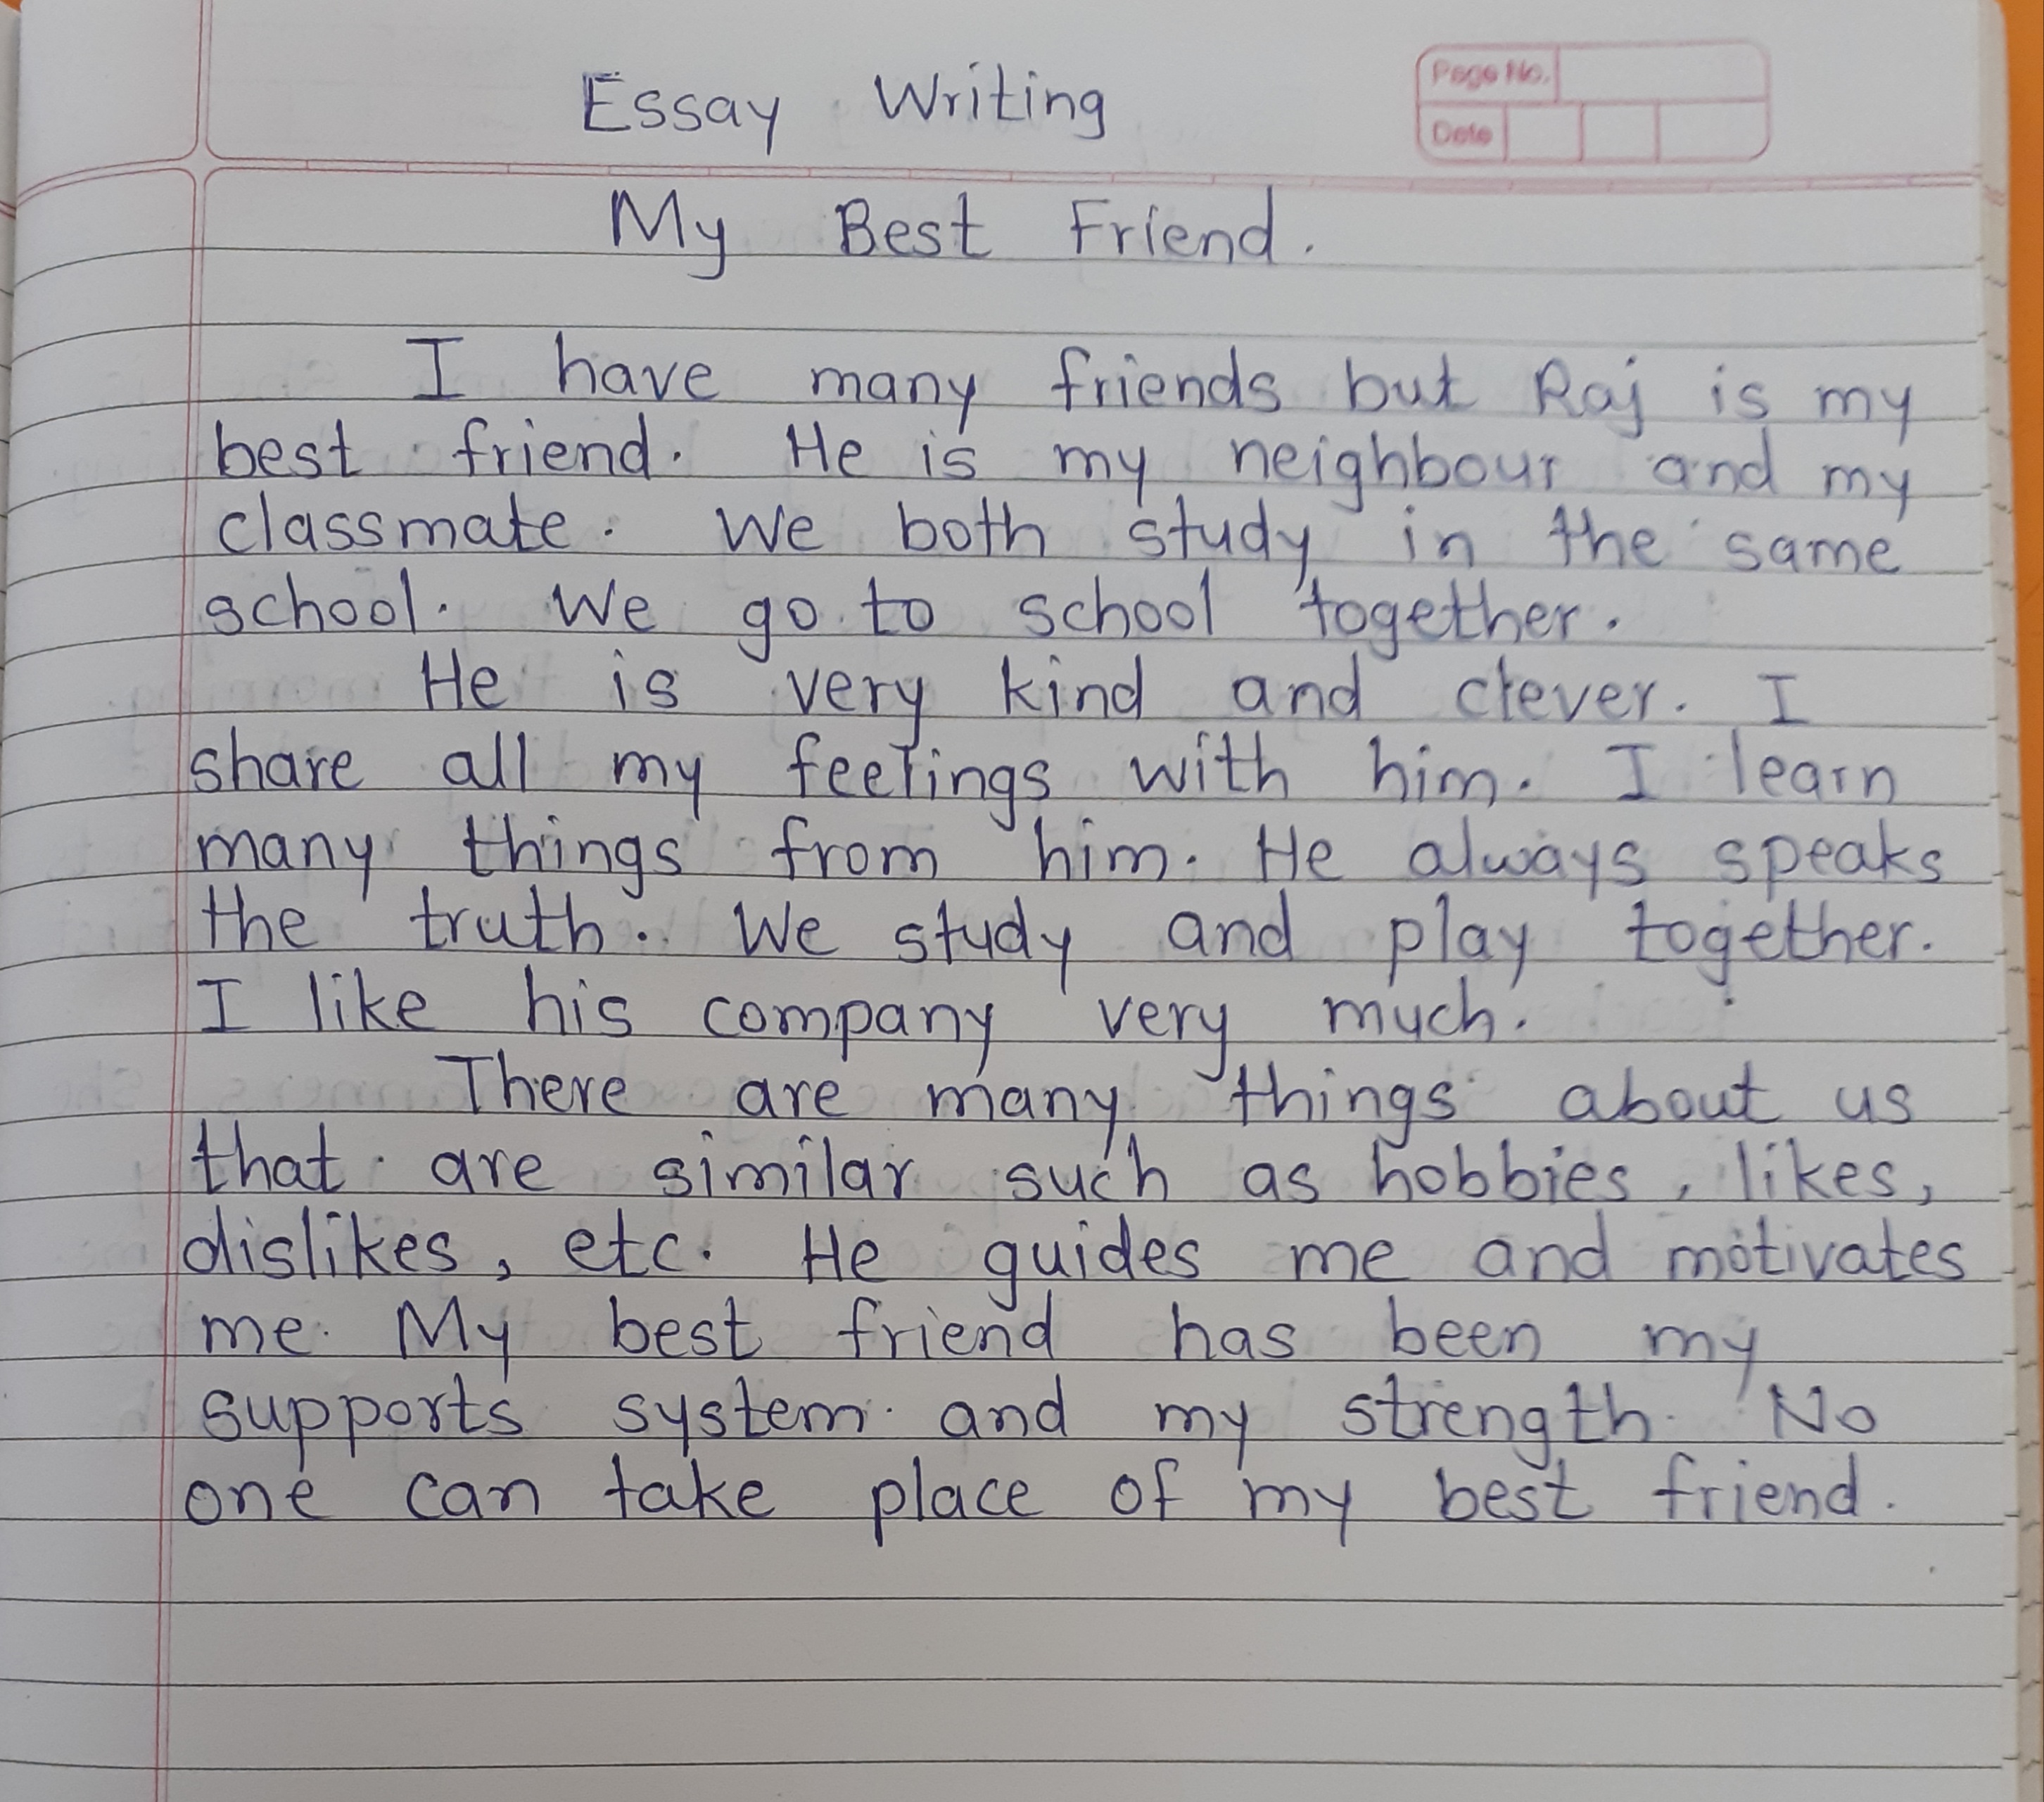 Essay Writing
Page No.
Date
My Best Friend.
I have many friends but Raj is my
best friend. He is my neighbour and my
classmate. We both study in the same
school. We go to school together.
He is very kind and clever. I
share all my feelings with him. I learn
many things from him. He always speaks
the truth. We study and play together.
I like his company very much.
There are many things about us
that are similar such as hobbies, likes,
dislikes, etc. He guides me and motivates
me. My best friend has been my
supports system and my strength. No
one can take place of my best friend.